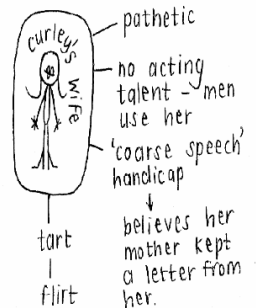 curley's
wife
pathetic
no acting
talent - men
use her
'coarse speech'
handicap
believes her
mother kept
a letter from
her.
tart
flirt